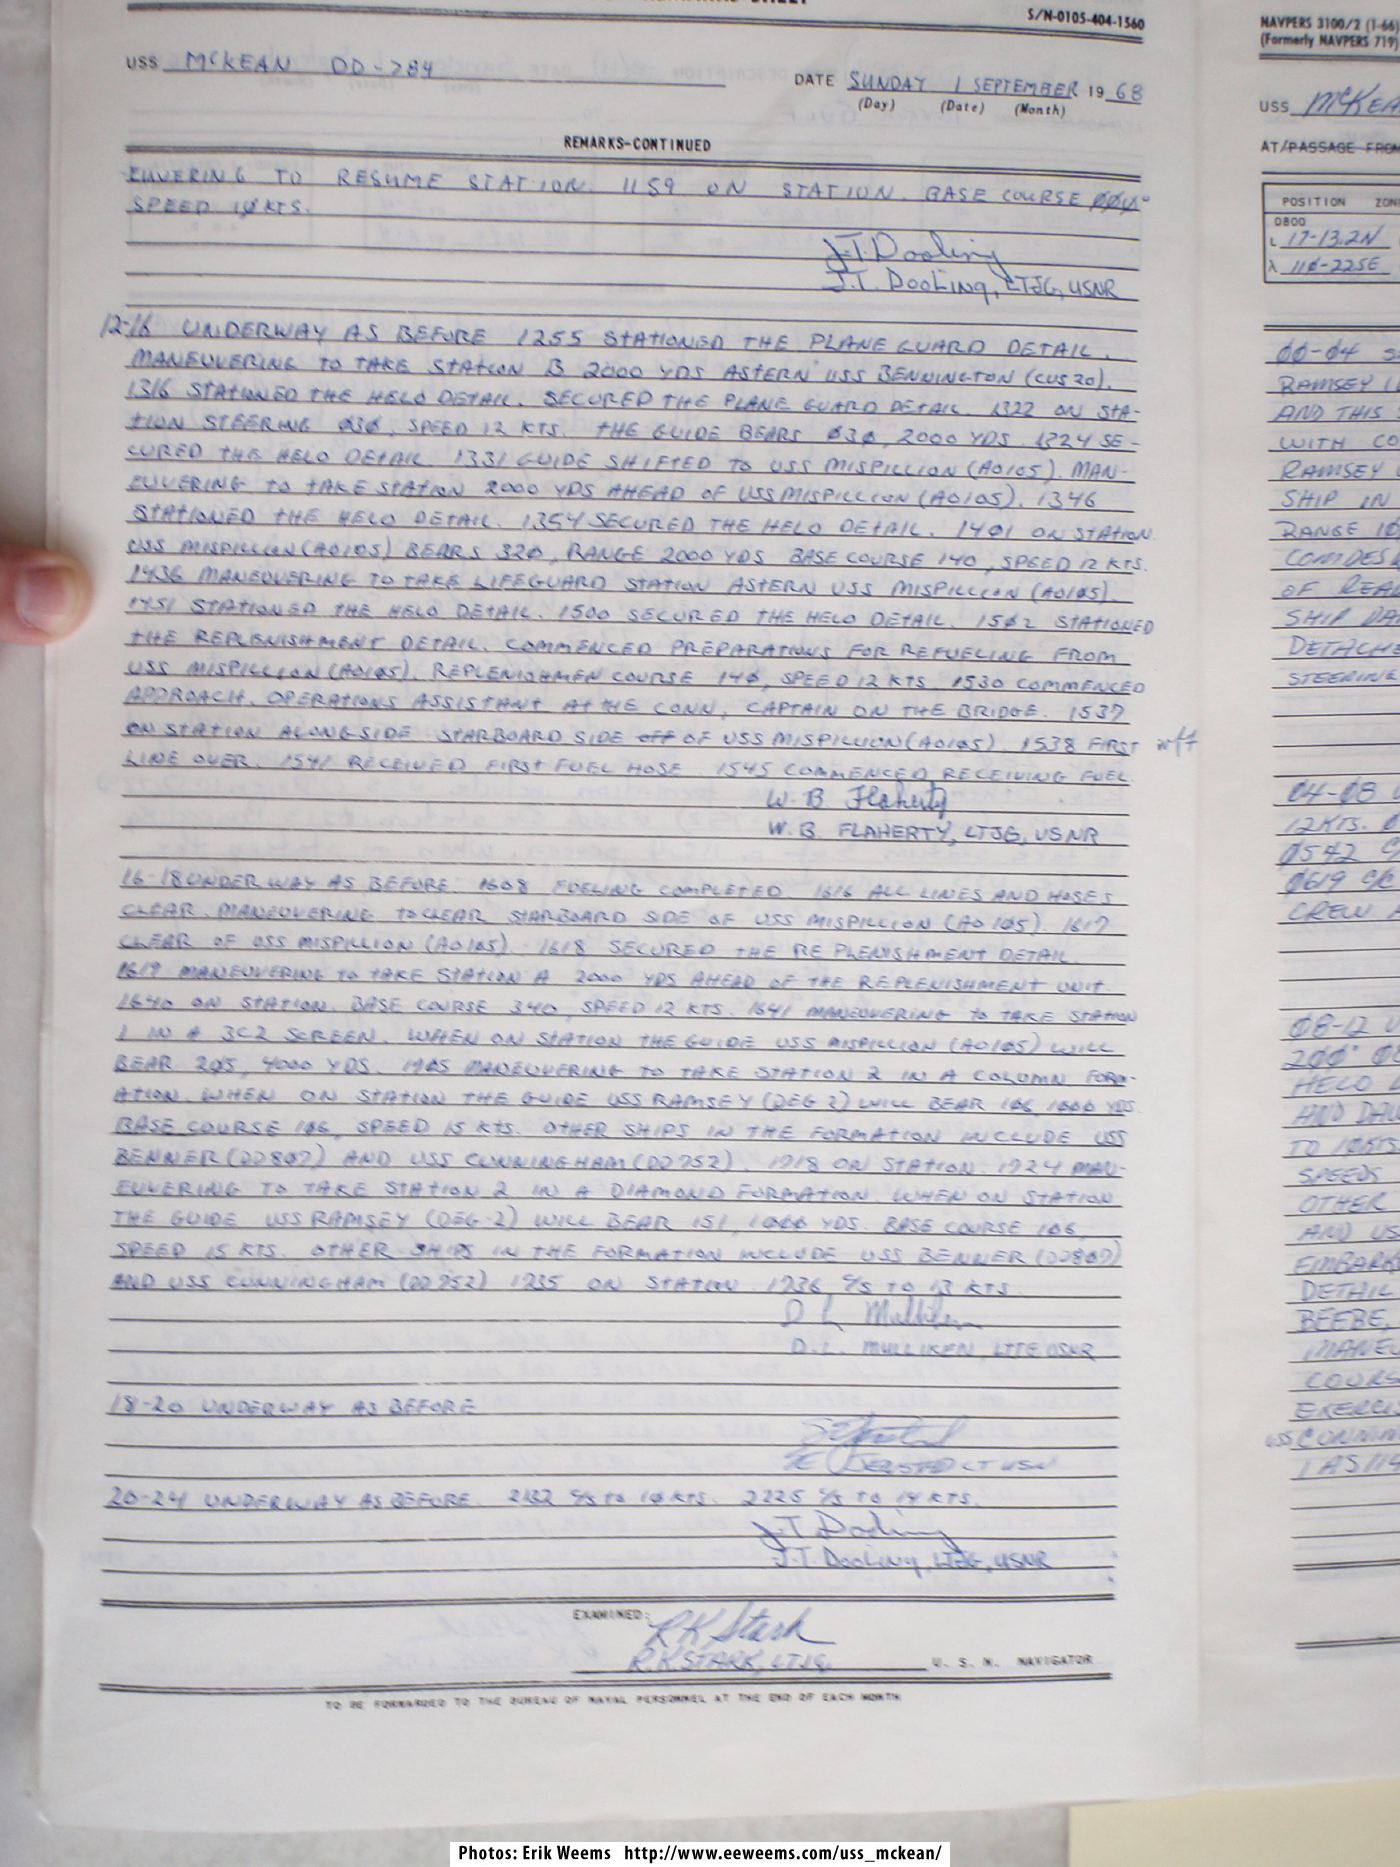 S/N-0105-404-1560
USS MCKEAN DD-784
DATE SUNDAY 1 SEPTEMBER 1968
(Day) (Date) (Month)
REMARKS-CONTINUED
EUVERING TO RESUME STATION. 1159 ON STATION. BASE COURSE ØØØ°
SPEED 1Ø KTS.
J.T. Dooling
J.T. Dooling, LTJG, USNR
12-16 UNDERWAY AS BEFORE 1255 STATIONED THE PLANE GUARD DETAIL.
MANEUVERING TO TAKE STATION B 2000 YDS ASTERN USS BENNINGTON (CVS 20).
1316 STATIONED THE HELO DETAIL. SECURED THE PLANE GUARD DETAIL. 1322 ON STA-
TION STEERING Ø3Ø, SPEED 12 KTS. THE GUIDE BEARS Ø3Ø, 2000 YDS. 1324 SE-
CURED THE HELO DETAIL. 1331 GUIDE SHIFTED TO USS MISPILLION (AO105). MAN-
EUVERING TO TAKE STATION 2000 YDS AHEAD OF USS MISPILLION (AO105). 1346
STATIONED THE HELO DETAIL. 1354 SECURED THE HELO DETAIL. 14Ø1 ON STATION
USS MISPILLION (AO105) BEARS 32Ø, RANGE 2000 YDS BASE COURSE 140, SPEED 12 KTS.
1436 MANEUVERING TO TAKE LIFEGUARD STATION ASTERN USS MISPILLION (AO1Ø5).
1451 STATIONED THE HELO DETAIL. 1500 SECURED THE HELO DETAIL. 15Ø2 STATIONED
THE REPLENISHMENT DETAIL. COMMENCED PREPARATIONS FOR REFUELING FROM
USS MISPILLION (AO1Ø5). REPLENISHMEN COURSE 14Ø, SPEED 12 KTS. 1530 COMMENCED
APPROACH. OPERATIONS ASSISTANT AT THE CONN, CAPTAIN ON THE BRIDGE. 1537
ON STATION ALONGSIDE STARBOARD SIDE off OF USS MISPILLION (AO1Ø5). 1538 FIRST wff
LINE OVER. 1541 RECEIVED FIRST FUEL HOSE. 1545 COMMENCED RECEIVING FUEL.
W. B. Flaherty
W. B. FLAHERTY, LTJG, USNR
16-18 UNDERWAY AS BEFORE. 16Ø8 FUELING COMPLETED. 1616 ALL LINES AND HOSES
CLEAR. MANEUVERING TO CLEAR STARBOARD SIDE OF USS MISPILLION (AO 1Ø5). 1617
CLEAR OF USS MISPILLION (AO1Ø5). 1618 SECURED THE REPLENISHMENT DETAIL.
1619 MANEUVERING TO TAKE STATION A 2000 YDS AHEAD OF THE REPLENISHMENT UNIT.
164Ø ON STATION. BASE COURSE 34Ø, SPEED 12 KTS. 1641 MANEUVERING TO TAKE STATION
1 IN A 3C2 SCREEN. WHEN ON STATION THE GUIDE USS MISPILLION (AO1Ø5) WILL
BEAR 2Ø5, 4000 YDS. 17Ø5 MANEUVERING TO TAKE STATION 2 IN A COLUMN FORM-
ATION. WHEN ON STATION THE GUIDE USS RAMSEY (DEG 2) WILL BEAR 1Ø6, 1ØØØ YDS.
BASE COURSE 1Ø6, SPEED 15 KTS. OTHER SHIPS IN THE FORMATION INCLUDE USS
BENNER (DD8Ø7) AND USS CUNNINGHAM (DD752). 1718 ON STATION. 1724 MAN-
EUVERING TO TAKE STATION 2 IN A DIAMOND FORMATION. WHEN ON STATION
THE GUIDE USS RAMSEY (DEG-2) WILL BEAR 151, 1ØØØ YDS. BASE COURSE 1Ø6,
SPEED 15 KTS. OTHER SHIPS IN THE FORMATION INCLUDE USS BENNER (DD8Ø7)
AND USS CUNNINGHAM (DD 752) 1735 ON STATION 1736 C/S TO 13 KTS.
D L Mulliken
D. L. MULLIKEN, LTJG USNR
18-20 UNDERWAY AS BEFORE
LT USN
20-24 UNDERWAY AS BEFORE. 2132 C/S TO 1Ø KTS. 2225 C/S TO 14 KTS.
J.T. Dooling
J.T. Dooling, LTJG, USNR
EXAMINED:
R K Stark
R.K STARK, LTJG, U. S. N. NAVIGATOR
TO BE FORWARDED TO THE BUREAU OF NAVAL PERSONNEL AT THE END OF EACH MONTH
NAVPERS 3100/2 (1-66)
(Formerly NAVPERS 719)
USS MCKEA
AT/PASSAGE FROM
POSITION ZON
0800
L 17-13.2N
λ 11Ø-22.5E
ØØ-Ø4
RAMSEY
AND THIS
WITH CO
RAMSEY
SHIP IN
RANGE 10
COMDES
OF REA
SHIP
DETACHE
STEERING
Ø4-Ø8 U
12 KTS.
Ø542
Ø619
CREW
Ø8-12 U
2ØØ°
HELO
AND
TO 10 KTS
SPEEDS
OTHER
AND US
EMBARK
DETAIL
BEEBE,
MANEU
COURS
EXERCIS
USS CUNNIN
Photos: Erik Weems http://www.eeweems.com/uss_mckean/